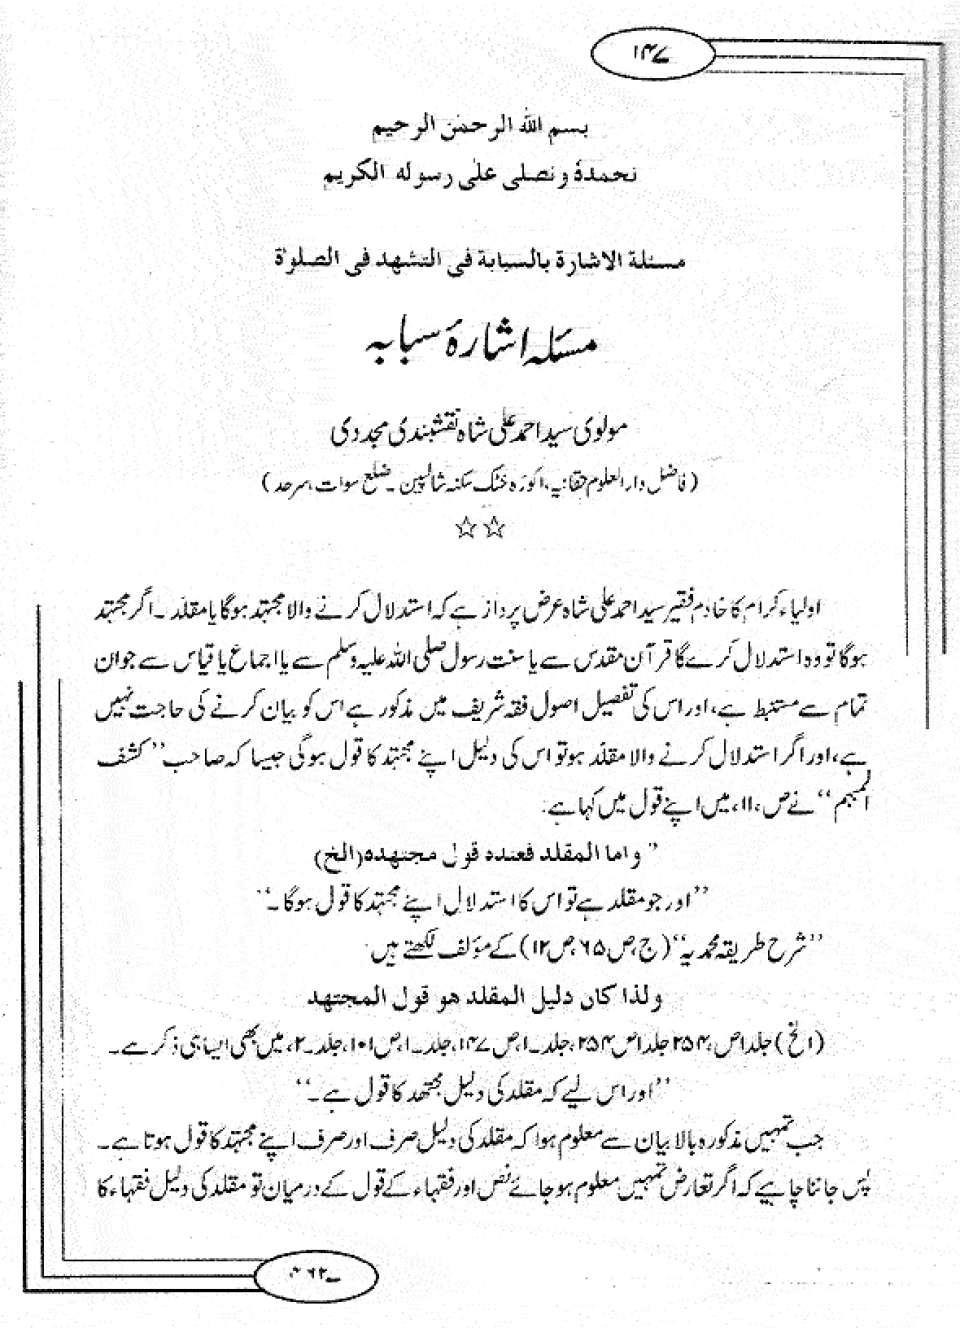 ۱۴۷
بسم الله الرحمٰن الرحيم
نحمدهٗ و نصلی علی رسوله الكريم
مسئلة الاشارة بالسبابة فى التشهد فى الصلوٰة
مسئلہ اشارۂ سبابہ
مولوی سید احمد علی شاہ نقشبندی مجددی
(فاضل دارالعلوم حقانیہ، اکوڑہ خٹک سکنہ شالپین۔ ضلع سوات، سرحد)
☆☆
اولیاء کرام کا خادم فقیر سید احمد علی شاہ عرض پرداز ہے کہ استدلال کرنے والا مجتہد ہوگا یا مقلد۔ اگر مجتہد
ہوگا تو وہ استدلال کرے گا قرآن مقدس سے یا سنت رسول صلی اللہ علیہ وسلم سے یا اجماع یا قیاس سے جو ان
تمام سے مستنبط ہے، اور اس کی تفصیل اصول فقہ شریف میں مذکور ہے اس کو بیان کرنے کی حاجت نہیں
ہے، اور اگر استدلال کرنے والا مقلد ہو تو اس کی دلیل اپنے مجتہد کا قول ہوگی جیسا کہ صاحب ’’کشف
المبہم‘‘ نے ص، ۱۱، میں اپنے قول میں کہا ہے:
” و اما المقلد فعنده قول مجتهده (الخ)
’’اور جو مقلد ہے تو اس کا استدلال اپنے مجتہد کا قول ہوگا۔‘‘
’’شرح طریقہ محمدیہ‘‘ (ج، ص ۶۵، ص ۱۲) کے مؤلف لکھتے ہیں
ولذا كان دليل المقلد هو قول المجتهد
(الخ) جلد ا ص، ۲۵۴ جلد ا ص ۲۵۴، جلد۔ ا، ص ۱۴۷، جلد۔ ا، ص ۱۰۱، جلد۔ ۲، میں بھی ایسا ہی ذکر ہے۔
’’اور اس لیے کہ مقلد کی دلیل مجتھد کا قول ہے۔‘‘
جب تمہیں مذکورہ بالا بیان سے معلوم ہوا کہ مقلد کی دلیل صرف اور صرف اپنے مجتہد کا قول ہوتا ہے۔
پس جاننا چاہیے کہ اگر تعارض تمہیں معلوم ہو جائے نص اور فقہاء کے قول کے درمیان تو مقلد کی دلیل فقہاء کا